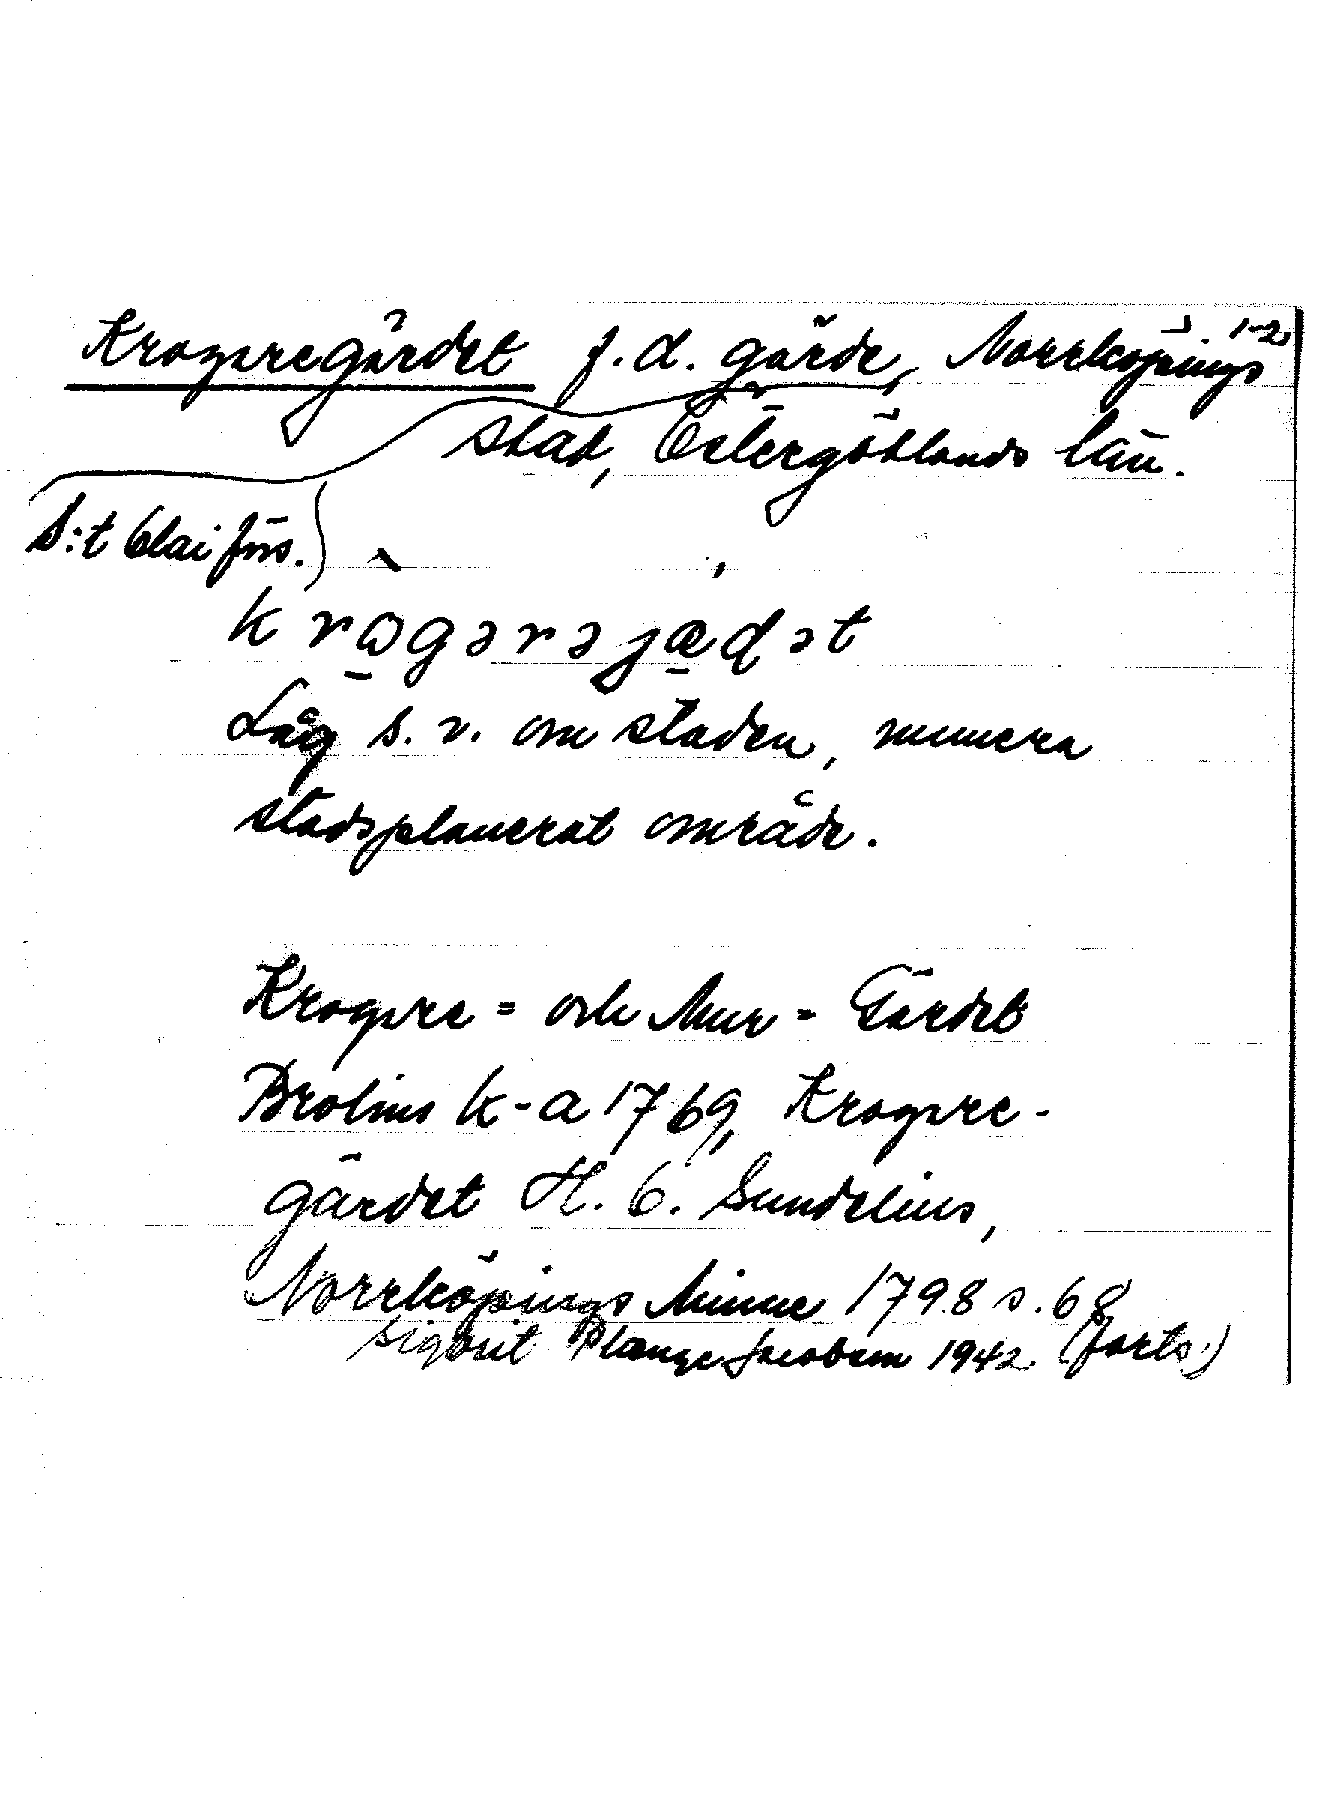 Krogaregärdet f. d. gärde, Norrköpings 1-2,
stad, Östergötlands län.
S:t Olai förs.)
krogərəjædət
Låg s. v. om staden, numera
stadsplanerat område.
Krogare = och Mur = Gärdet
Brolins k-a 1769, Krogare-
gärdet H. C. Sundelius,
Norrköpings Minne 1798 s. 68
Sigbrit Plænge Jacobson 1942 (forts.)